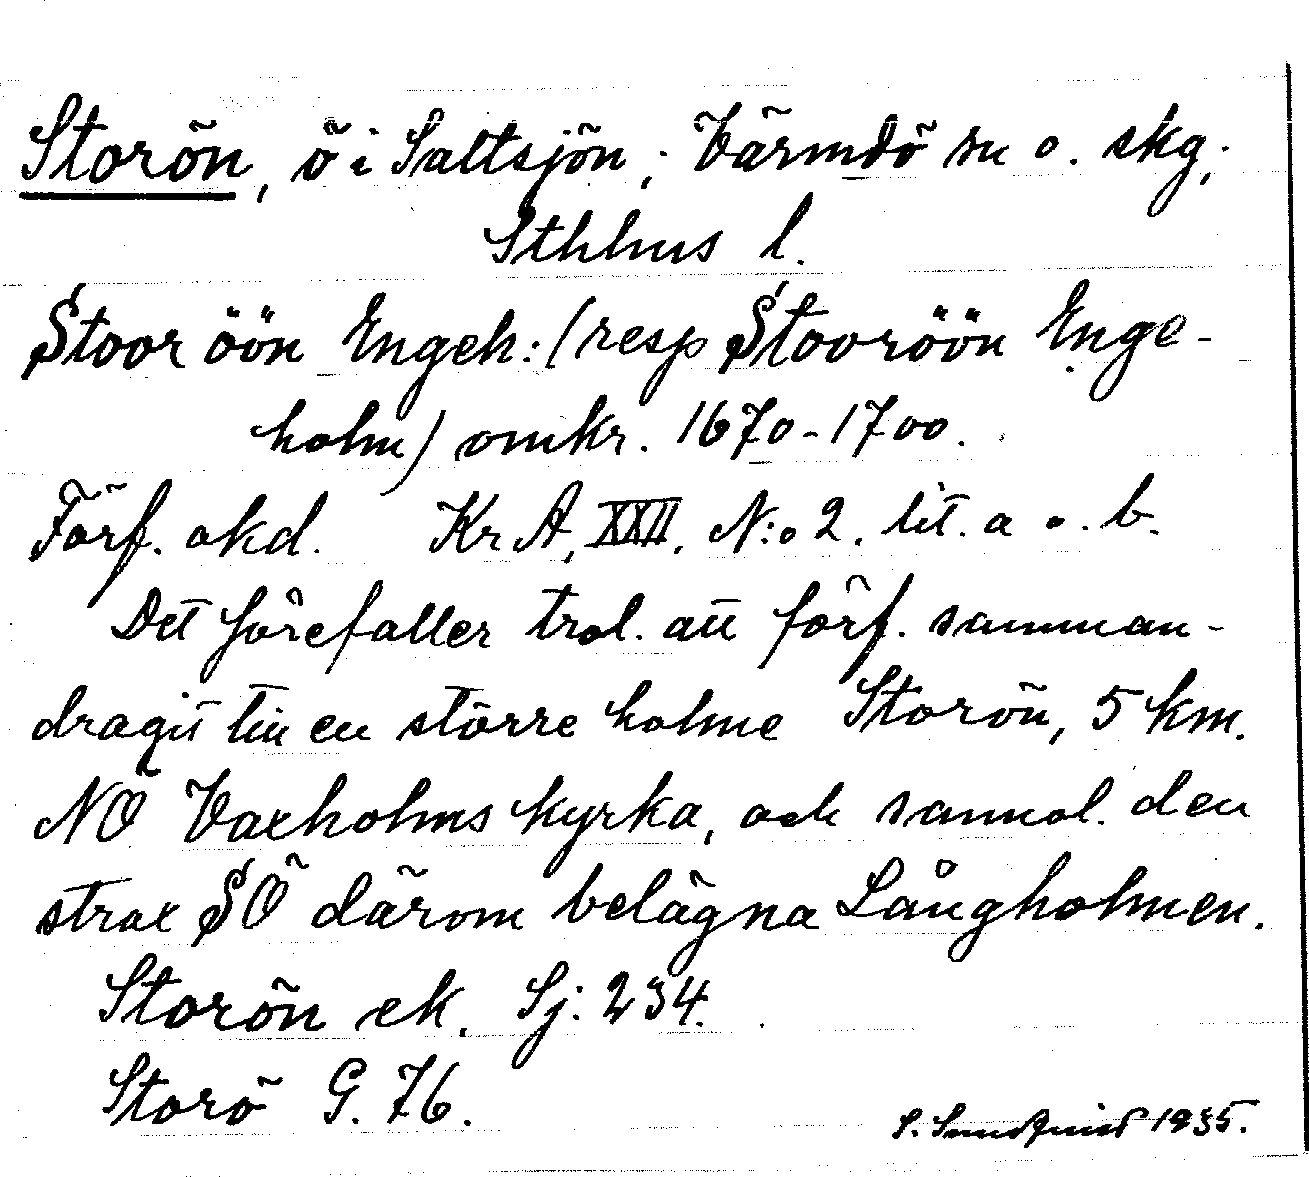 Storön, ö i Saltsjön, Värmdö sn o. skg,
Sthlms l.
Stoor öön Engeh: (resp Stooröön Enge-
holm) omkr. 1670-1700.
Förf. okd. KrA, XXII, N:o 2. lit. a o. b.
Det förefaller trol. att förf. samman-
dragit till en större holme Storön, 5 km.
NÖ Vaxholms kyrka, och sannol. den
strax SÖ därom belägna Långholmen.
Storön ek. Sj: 234.
Storö G. 76.
S. Sundquist 1935.